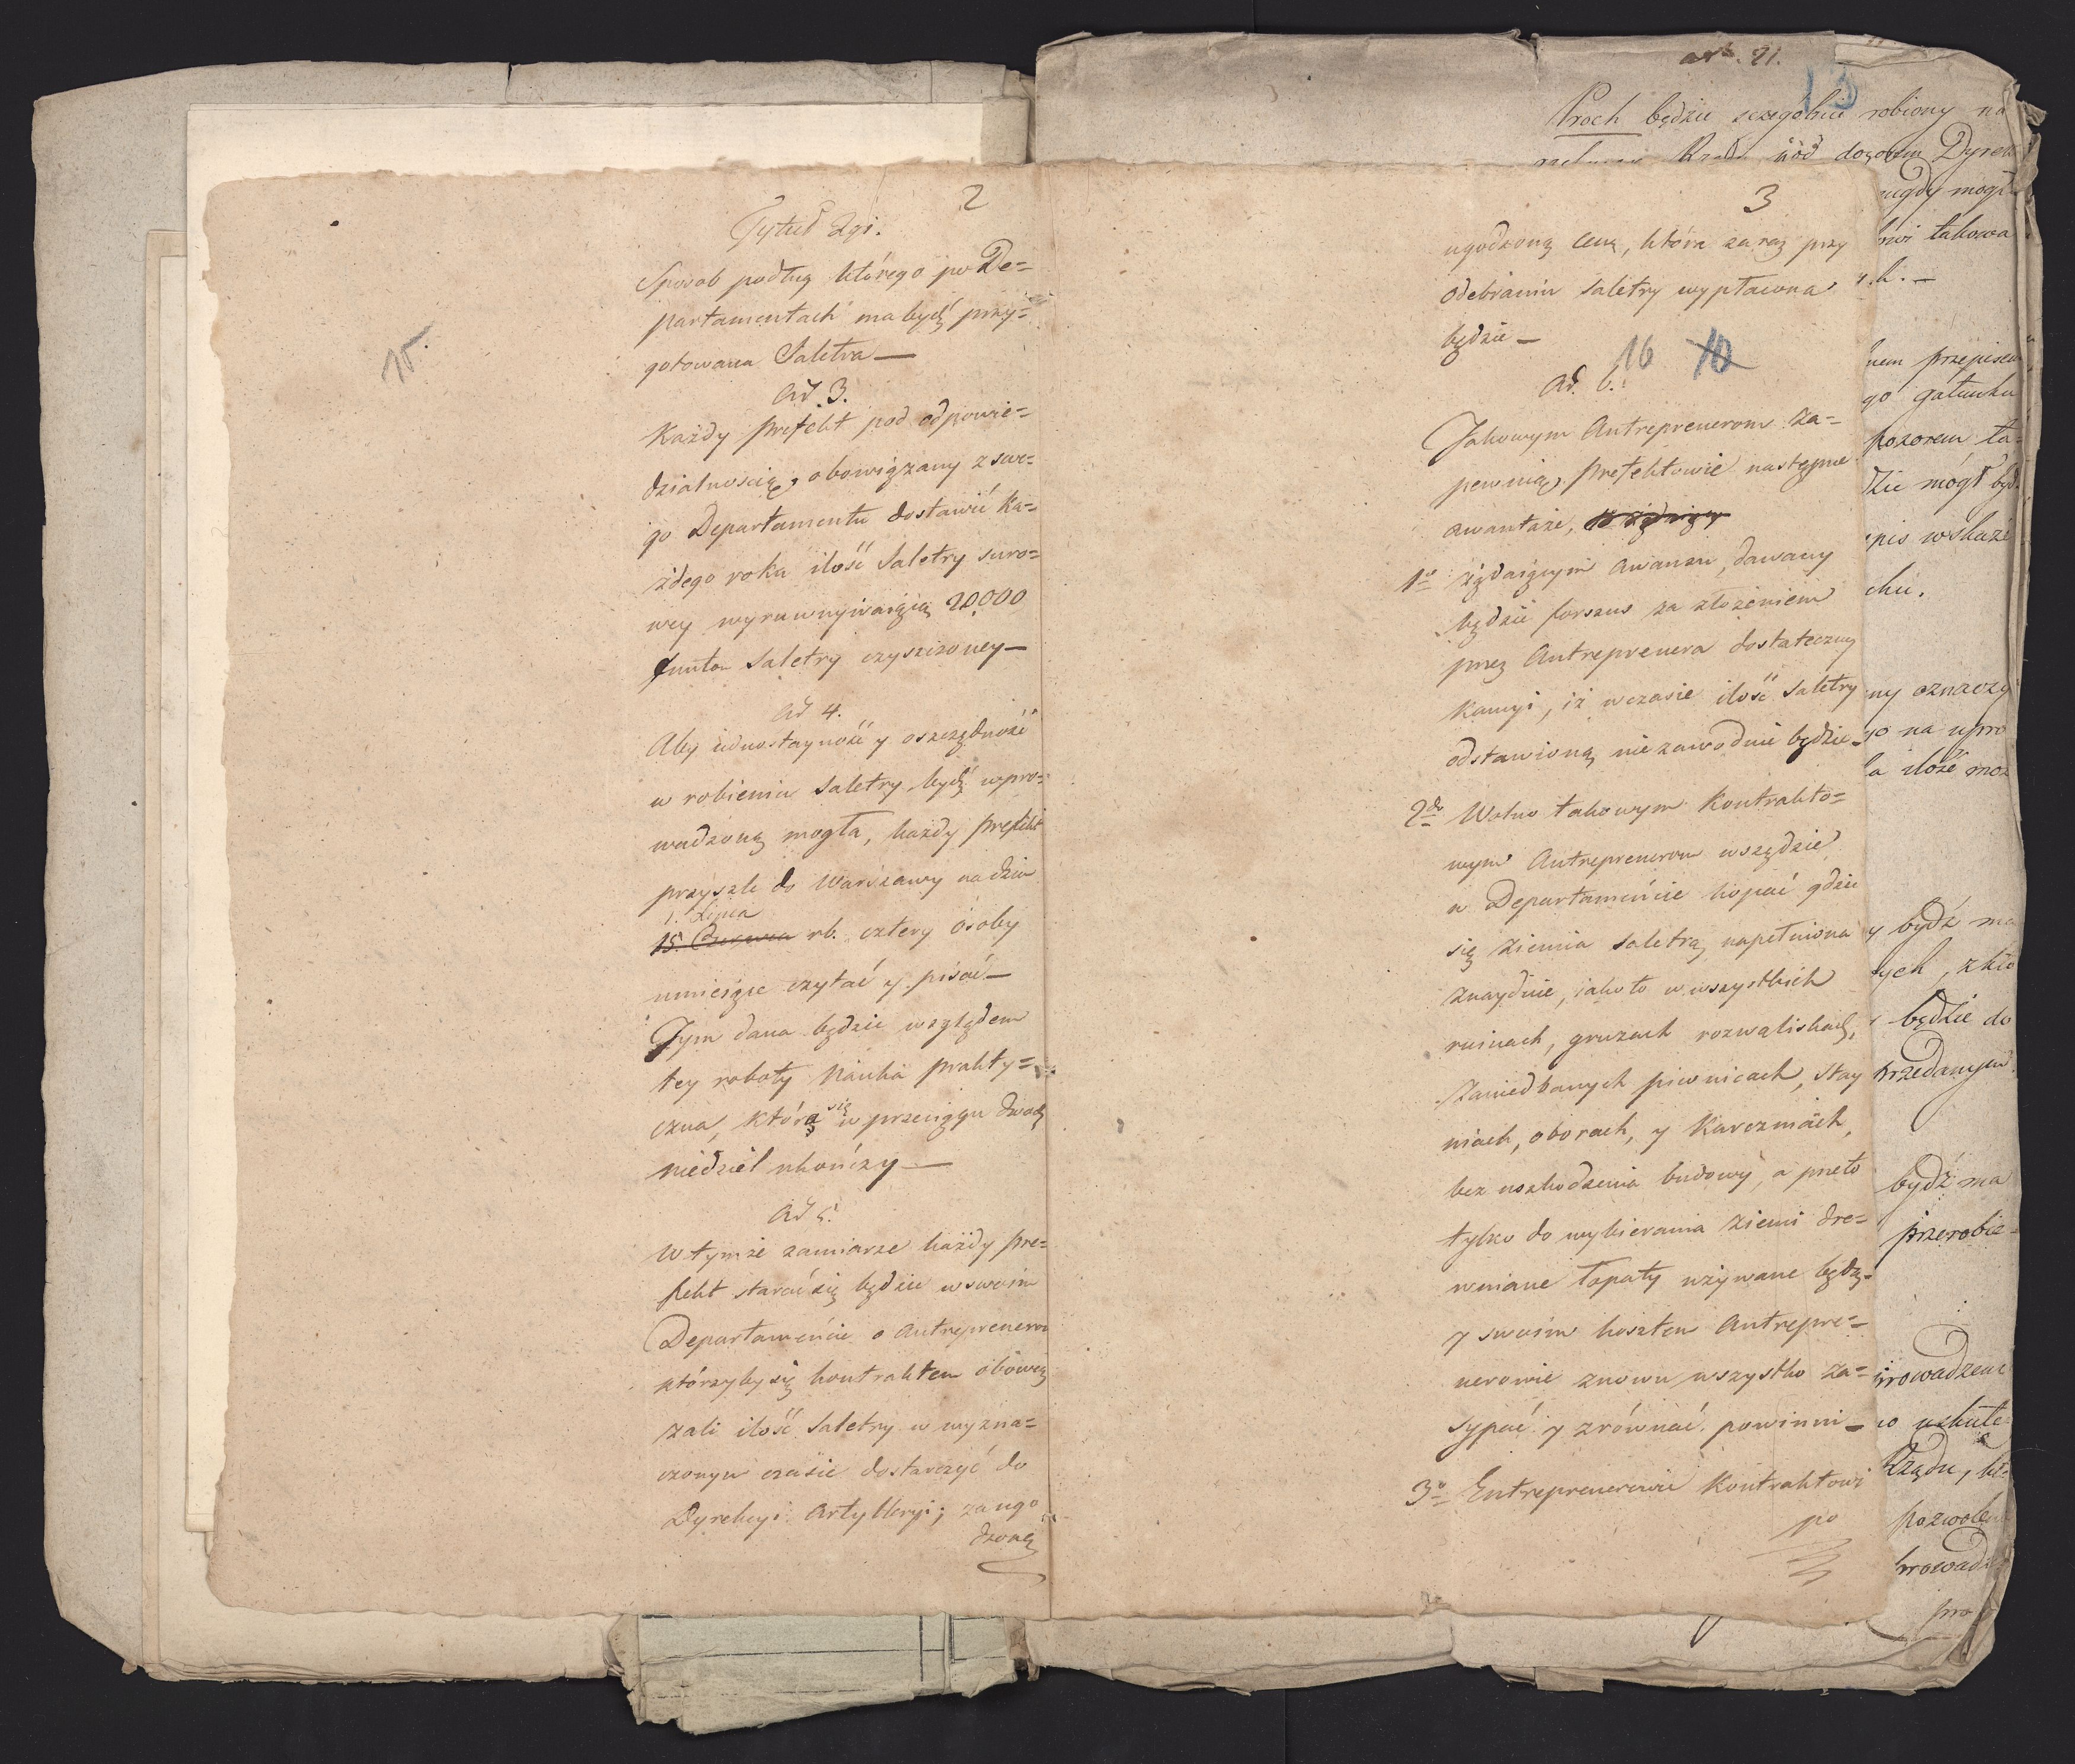 2
Tytuł 2gi.
Sposob podług którego po De=
partamentach ma bydź przy=
gotowana Saletra —
15.
Ad. 3.
Każdy prefekt pod odpowie=
dzialnoscią, obowiązany z swe=
go Departamentu dostawić ka=
żdego roku ilość Saletry suro=
wey wyrownywaiącą 20.000
funtow Saletry czyszczoney —
Ad 4.
Aby iednostayność y oszczędność
w robieniu Saletry bydź wpro=
wadzoną mogła, każdy prefekt
przyszle do Warszawy na dzien
1. Lipca
15. Czerwca rb. cztery osoby
umieiące czytać y pisać —
Tym dana będzie względem
tey roboty nauka prakty=
czna, która się w przeciągu dwoch
niedziel ukończy —
Ad 5.
W tymże zamiarze każdy pre=
fekt starać się będzie w swoim
Departamencie o Antreprenerow
którzyby się kontraktem obowią
zali ilość Saletry w wyzna=
czonym czasie dostarczyć do
Dyrekcyi Artylleryi; za ugo
dzoną
3
ugodzoną cenę, która zaraz przy
odebraniu Saletry wypłacona
będzie —
16 10
Ad. 6.
Takowym Antreprenerom za=
pewnią, Prefektowie następne
awantaże,
1º żądaiącym awansu, dawany
będzie forszus za złożeniem
przez Antreprenera dostateczney
kaucyi, iż w czasie ilość Saletry
odstawioną niezawodnie będzie —
2do Wolno takowym Kontrakto=
wym Antreprenerom wszędzie
w Departamencie kopać gdzie
się ziemia saletrą napełniona
znaydzie, iako to w wszystkich
ruinach, gruzach rozwaliskach,
zaniedbanych piwnicach, stay
niach, oborach, y Karczmach,
bez uszkodzenia budowy, a przeto
tylko do wybierania ziemi dre=
wniane łopaty używane będą —
y swoim kosztem Antrepre=
nerowie znowu wszystko za=
sypać y zrównać powinni —
3º Entreprenerowie Kontraktowi
po
art. 21.
13
Proch będzie szczegolnie robiony na
dozorem Dyrek
nigdy mogł
takowa
przepisem
gatunku
pozorem ta=
mógł być
wskaże
chu.
oznaczy
na upro
ilość moż
bydź ma
będzie do
przedanym
bydź ma
przerobie=
uskute
Rządu, któ
pozwole
pro